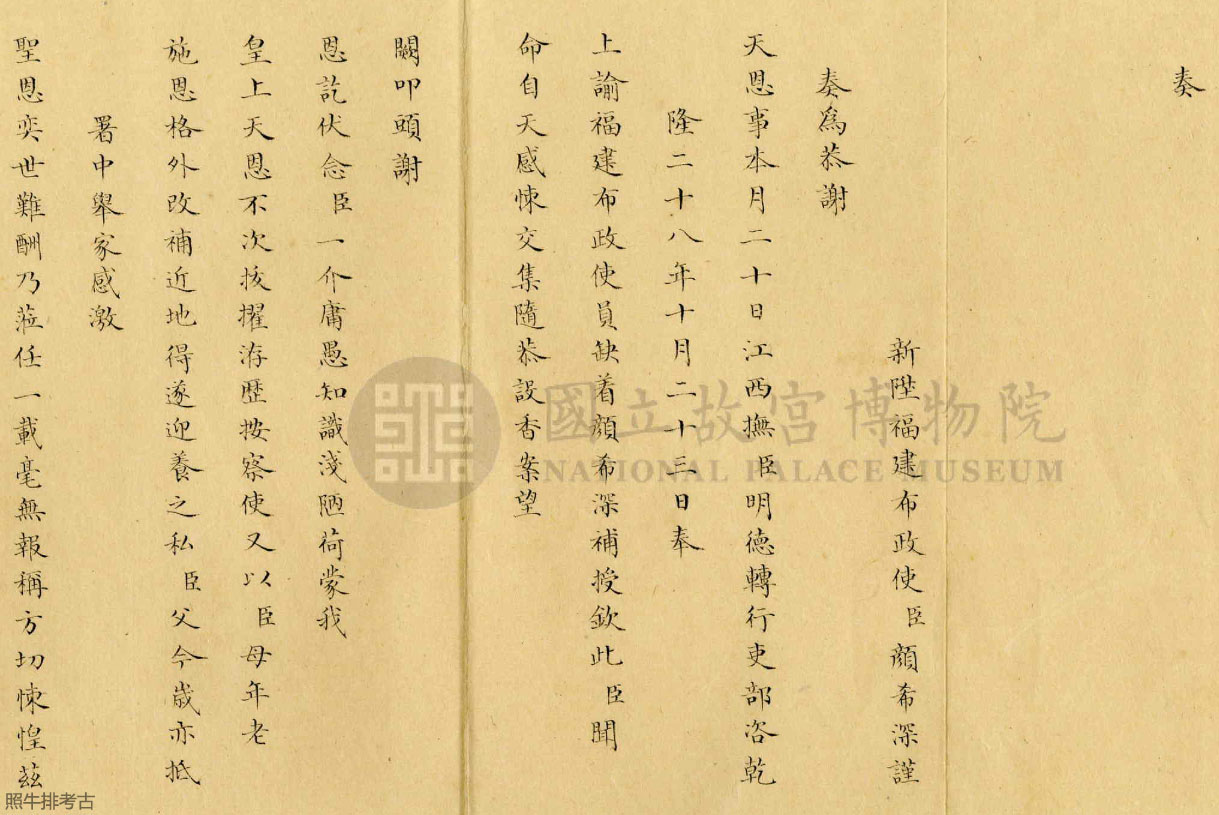 奏
新陞福建布政使臣顔希深謹
奏爲恭謝
天恩事本月二十日江西撫臣明德轉行吏部咨乾
隆二十八年十月二十三日奉
上諭福建布政使員缺着顔希深補授欽此臣聞
命自天感悚交集隨恭設香案望
闕叩頭謝
恩訖伏念臣一介庸愚知識淺陋荷蒙我
皇上天恩不次拔擢洊歷按察使又以臣母年老
施恩格外改補近地得遂迎養之私臣父今歲亦抵
署中舉家感激
聖恩奕世難酬乃蒞任一載毫無報稱方切悚惶茲
國立故宮博物院
NATIONAL PALACE MUSEUM
照牛排考古